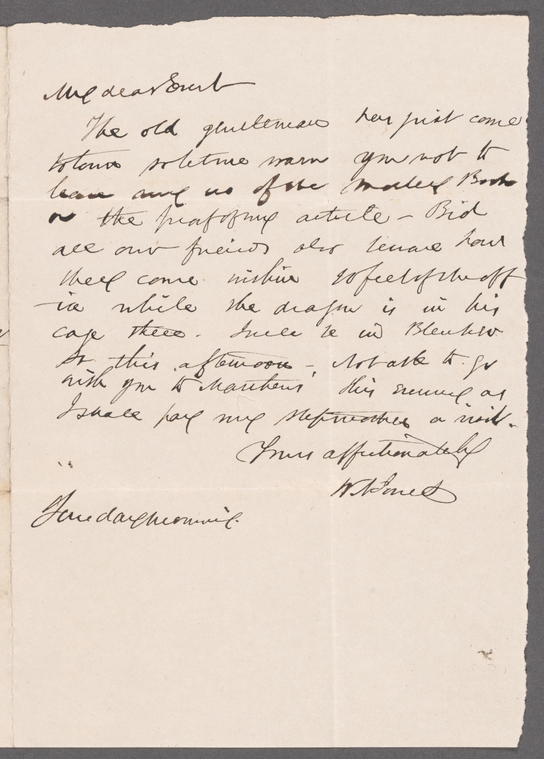 My dear Evert
The old gentleman has just come
to town so let me warn you not to
leave any no of the Market Book
or the proof of my article - Bid
all our friends also beware how
they come within 50 feet of the off
ice while the dragon is in his
cage there. I will be in Bleecker
St this afternoon - Not able to go
with you to Matthews' this evening as
I shall pay my stepmother a visit.
Yours affectionately
W A Jones
Tuesday morning.